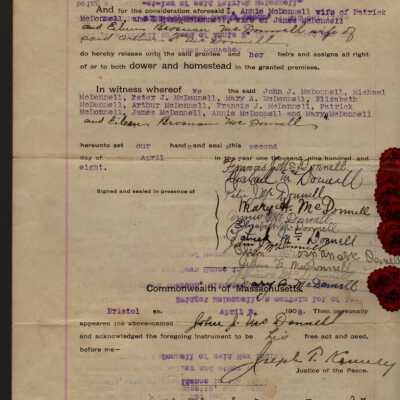 And for the consideration aforesaid I, Annie McDonnell wife of Patrick
McDonnell, and Mary McDonnell wife of James McDonnell
and Eileen Brosnan McDonnell wife of
said
do hereby release unto the said grantee and her heirs and assigns all right
of or to both dower and homestead in the granted premises.
In witness whereof we the said John J. McDonnell, Michael
McDonnell, Peter J. McDonnell, Mary A. McDonnell, Elizabeth
McDonnell, Arthur McDonnell, Francis J. McDonnell, Patrick
McDonnell, James McDonnell, Annie McDonnell and Mary McDonnell
and Eileen Brosnan McDonnell
hereunto set our hands and seal this second
day of April in the year one thousand nine hundred and
eight.
Signed and sealed in presence of
Francis J. McDonnell
Michael McDonnell
Peter McDonnell
Mary A. McDonnell
Annie McDonnell
Elizabeth McDonnell
Patrick McDonnell
McDonnell
Brosnan McDonnell
John J. McDonnell
Mary McDonnell
Commonwealth of Massachusetts.
Bristol ss. April 1908. Then personally
appeared the above-named John J. McDonnell
and acknowledged the foregoing instrument to be his free act and deed,
before me—
Joseph T. Kenney
Justice of the Peace.